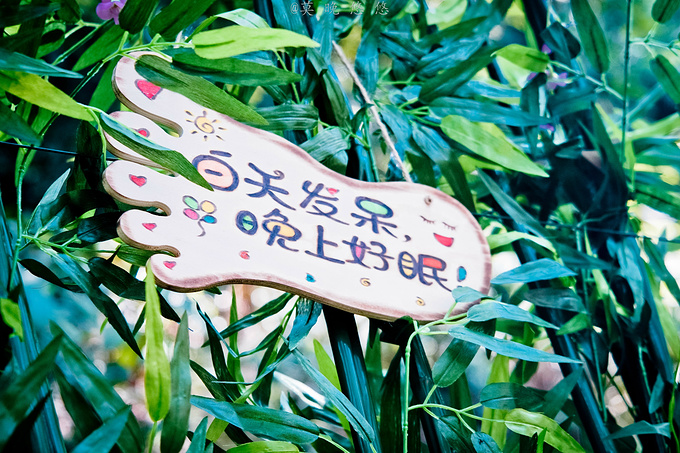 @莫晚悠悠
白天发呆,
晚上好眠